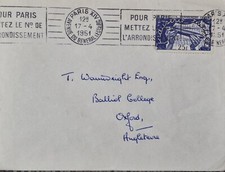 POUR PARIS
METTEZ LE Nº DE
L'ARRONDISSEMENT
PARIS XIV
12H
17-4
1951
POUR PARIS
METTEZ L
L'ARRONDIS
1951
25F
T. Wainwright Esq.,
Balliol College
Oxford,
Angleterre